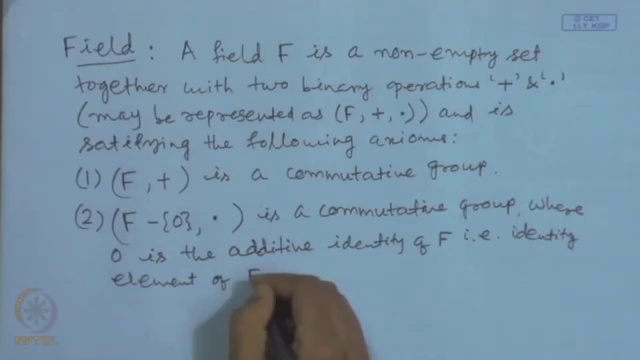 © CET
I.I.T. KGP
Field : A field F is a non-empty set
together with two binary operations '+' & '.'
(may be represented as (F, +, .)) and is
satisfying the following axioms:
(1) (F, +) is a commutative group.
(2) (F - {0}, .) is a commutative group, where
0 is the additive identity of F i.e. identity
element of F
NPTEL